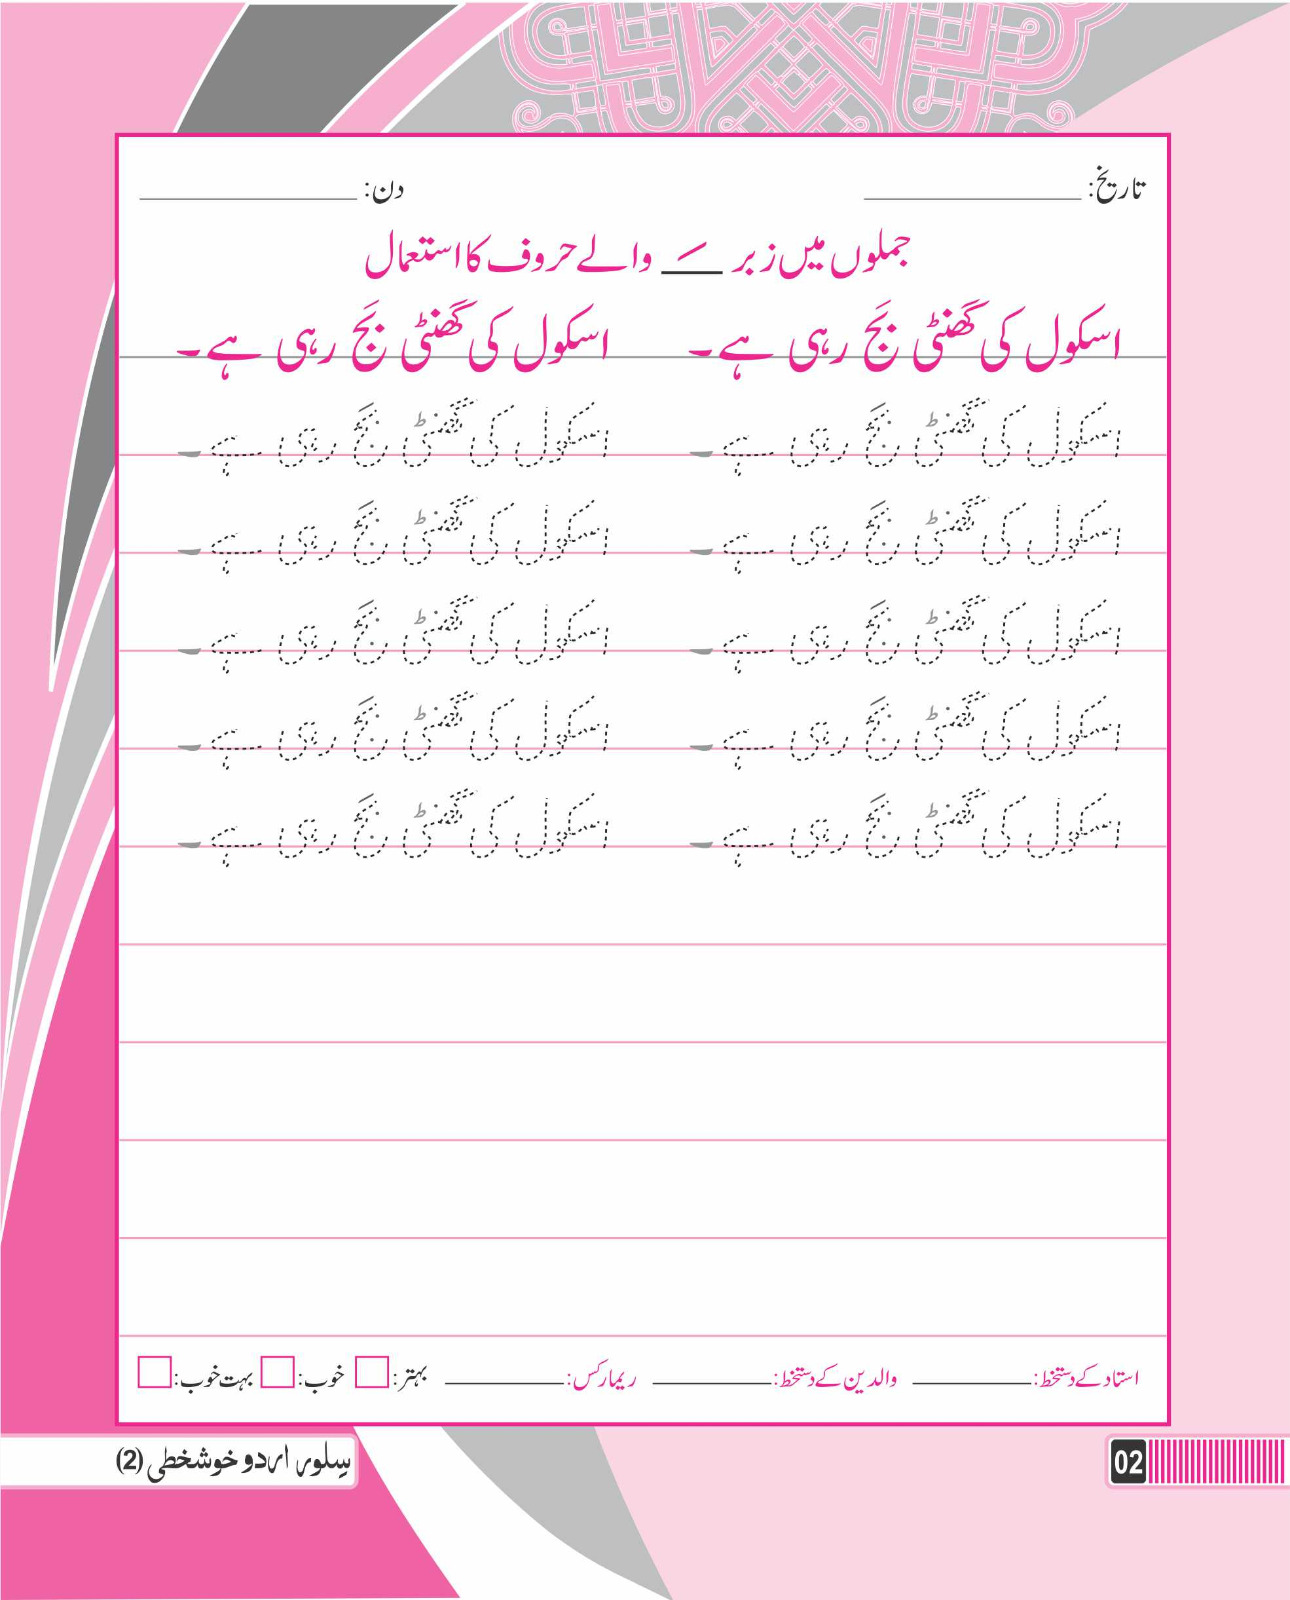 تاریخ: ____________ دن: ____________
جملوں میں زبر ـَ والے حروف کا استعمال
اسکول کی گھنٹی بَج رہی ہے۔ اسکول کی گھنٹی بَج رہی ہے۔
اسکول کی گھنٹی بَج رہی ہے۔ اسکول کی گھنٹی بَج رہی ہے۔
اسکول کی گھنٹی بَج رہی ہے۔ اسکول کی گھنٹی بَج رہی ہے۔
اسکول کی گھنٹی بَج رہی ہے۔ اسکول کی گھنٹی بَج رہی ہے۔
اسکول کی گھنٹی بَج رہی ہے۔ اسکول کی گھنٹی بَج رہی ہے۔
اسکول کی گھنٹی بَج رہی ہے۔ اسکول کی گھنٹی بَج رہی ہے۔
استاد کے دستخط: ________ والدین کے دستخط: ________ ریمارکس: ________ بہتر: خوب: بہت خوب:
02
سِلور اردو خوشخطی (2)